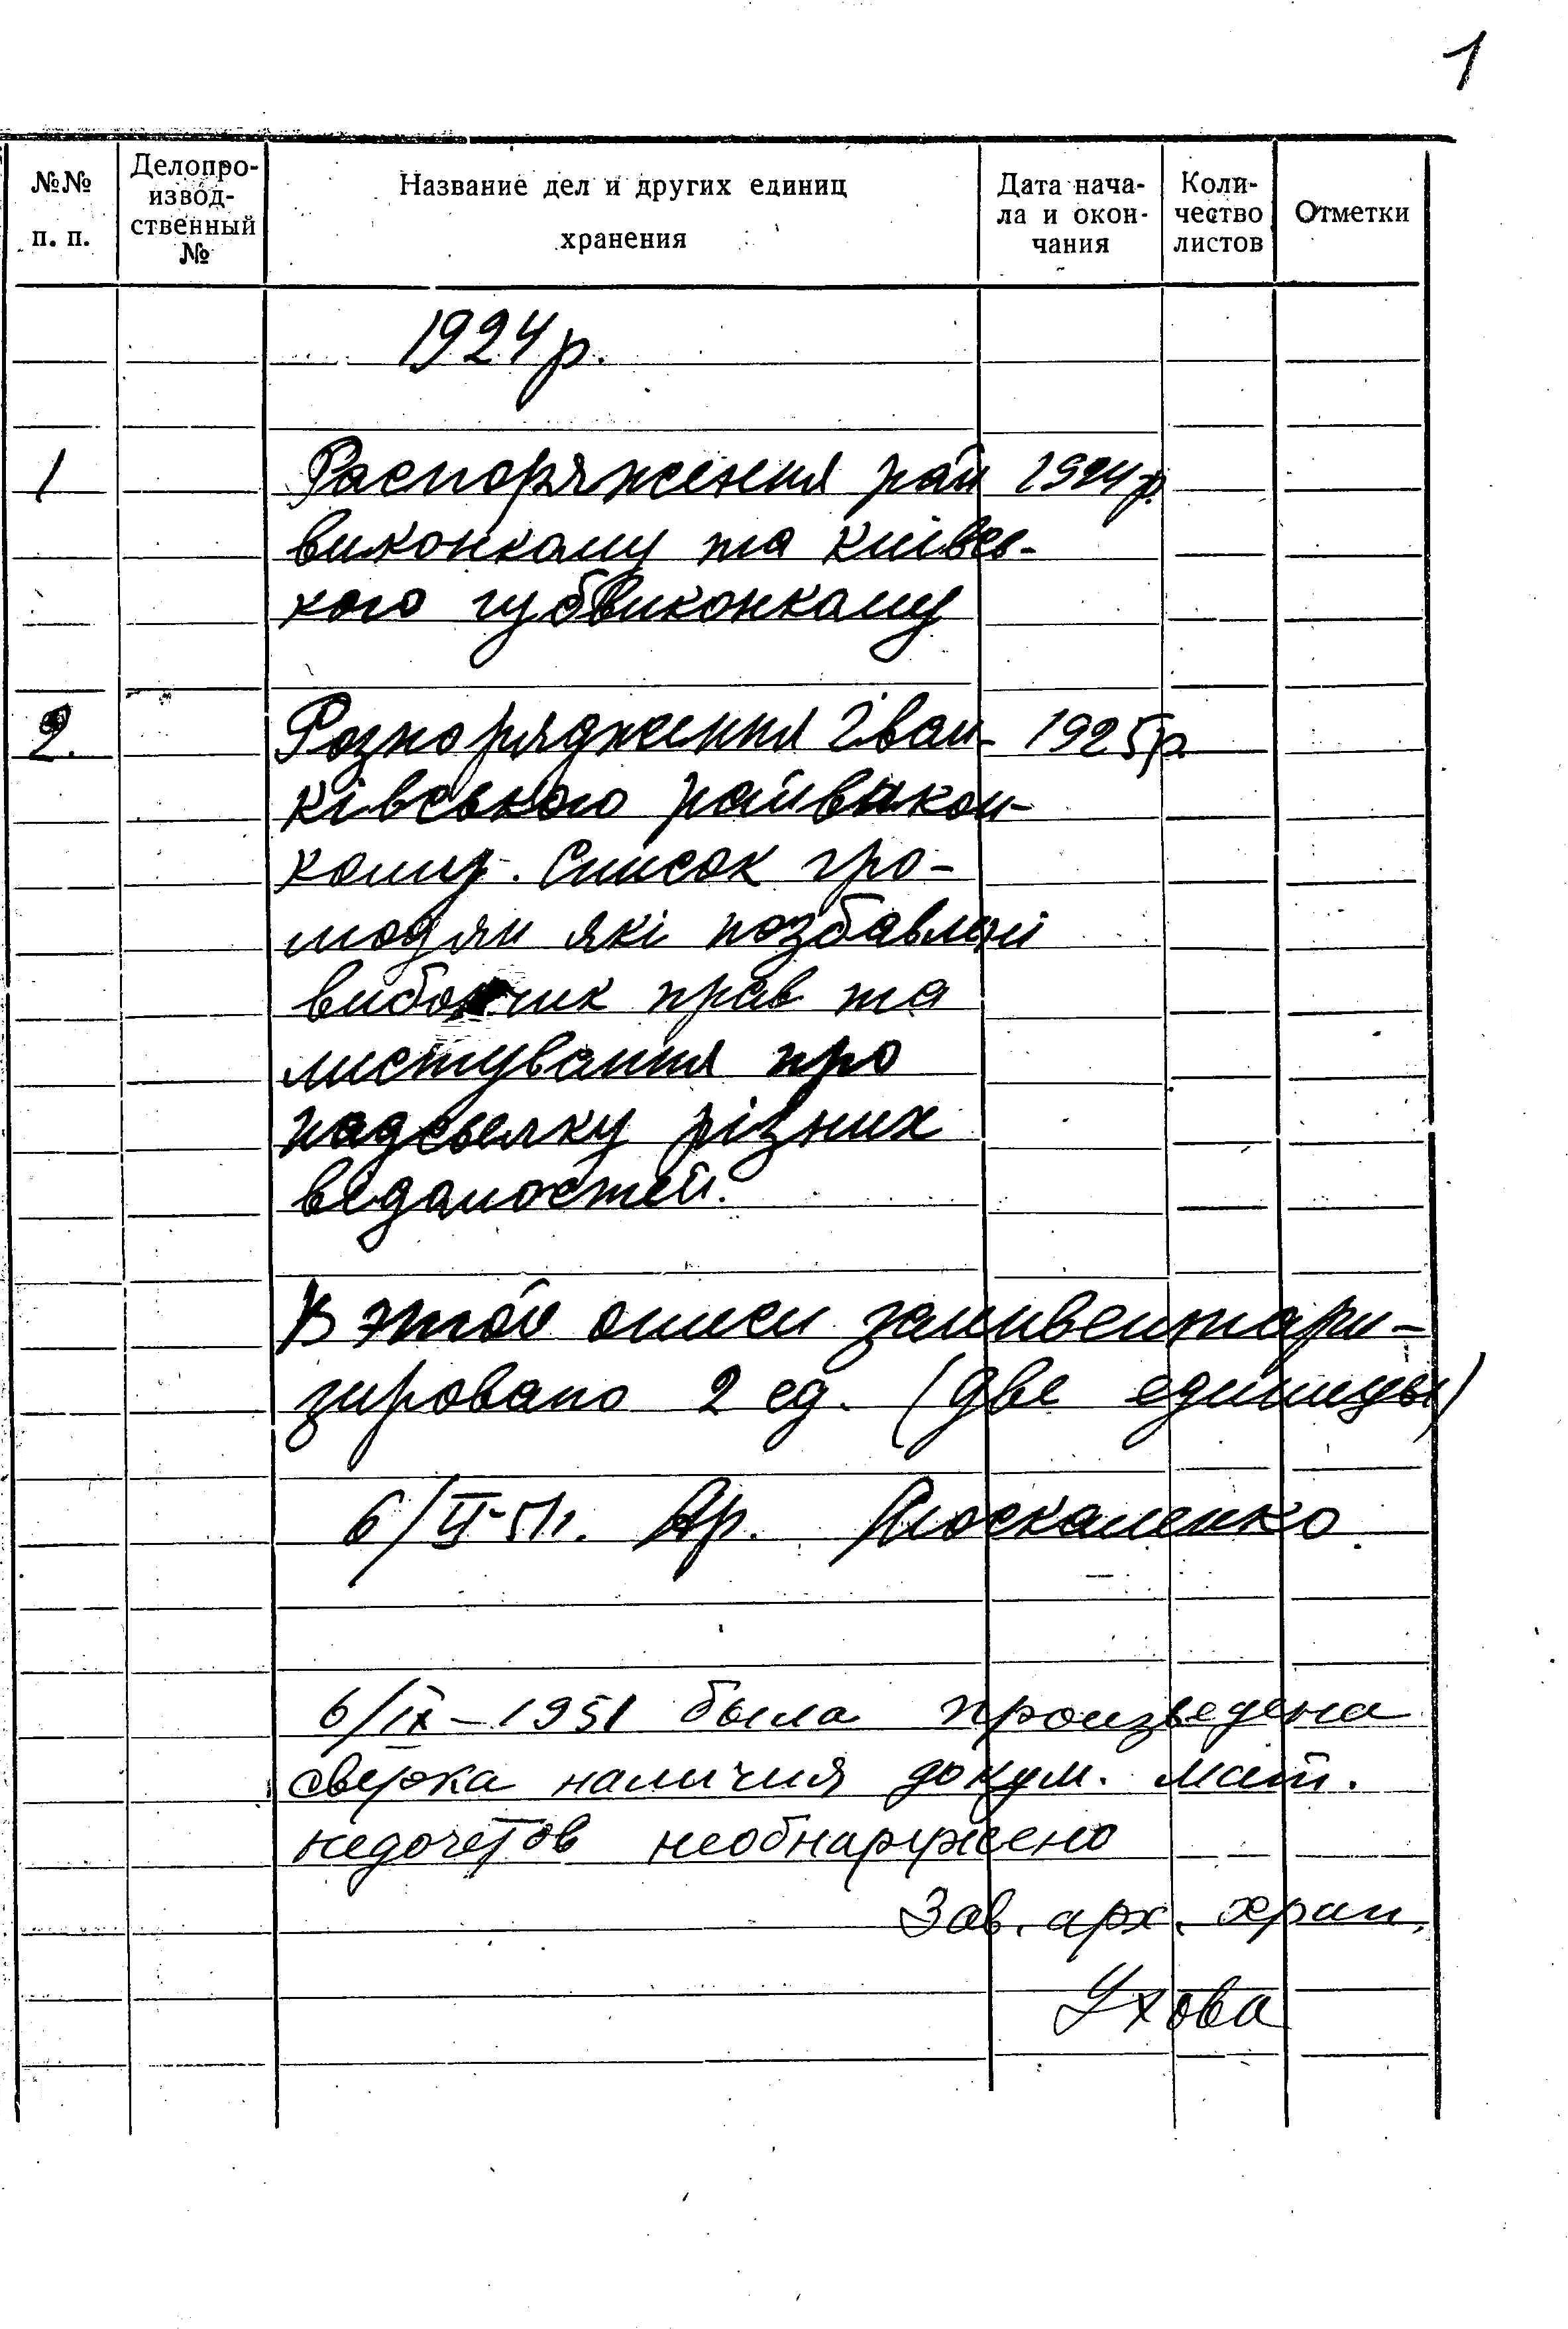 1
№№ п. п.
Делопро-
извод-
ственный
№
Название дел и других единиц
хранения
Дата нача-
ла и окон-
чания
Коли-
чество
листов
Отметки
1924 р.
1 Распоряження рай 1924 р.
виконкому та київсь-
кого губвиконкому
2. Розпорядження Іван- 1925 р
ківського райвикон-
кому. Список гро-
модян які позбавлені
виборчих прав та
листування про
надсылку різних
відомостей.
В этой описи заинвентари-
зировано 2 ед. (две единицы)
Ар. Москаленко
6/IX – 1951 была произведена
сверка наличия докум. мат.
недочетов необнаружено
Зав. арх. хран.
Ухова